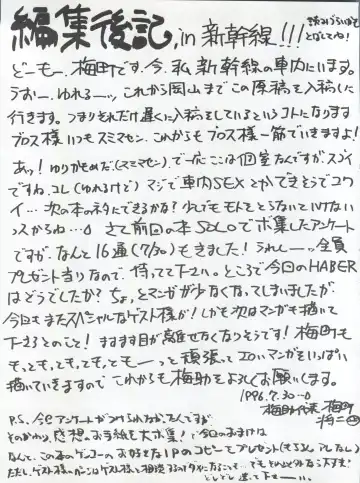 編集後記, in 新幹線!!!
読みづらいけど
どーもー、梅町です。今、私新幹線の車内にいます。
うおー、ゆれるーッ、これから岡山までこの原稿を入稿しに
行きます。つまりそれだけ遅くに入稿をしているというコトになります
プロス様いつもスミマセン、これからもプロス様一筋でいきますよ!
あッ!ゆりかもめだ。(スミマセン)で一応ここは個室なんですがスゴイ
ですね、コレ(ゆれるけど)マジで車内SEXとかできそうでコワ
イ…次の本のネタにできるかな?少しでもモトをとらないといけない
っスからね…。さて前回の本SOLOでボ集したアンケート
ですが、なんと16通(7/30)もきました!うれしーッ、全員
プレゼント当りなので、待って下さい。ところで今回のHABER
はどうでしたか?ちょっとマンガが少なくなってしまいましたが、
今回もまたスペシャルなゲスト様が!しかも次はマンガも描いて
下さるとのこと!ますます目が離せなくなりそうです!梅町も
もっと、もっと、もっと、もっともーっと頑張ってエロいマンガをいっぱい
描いていきますので これからも梅助をよろしくお願いします。
1996.7.30
梅助代表 梅町
P.S. 今回アンケートがつけられなかったんですが
そのかわり、感想のお手紙を大ボ集!今回のおまけは
なんと、この本のゲンコーのお好きな1Pのコピーをプレゼント
ただし、ゲスト様のページはゲスト様と相談
どしどし送って下さーい。